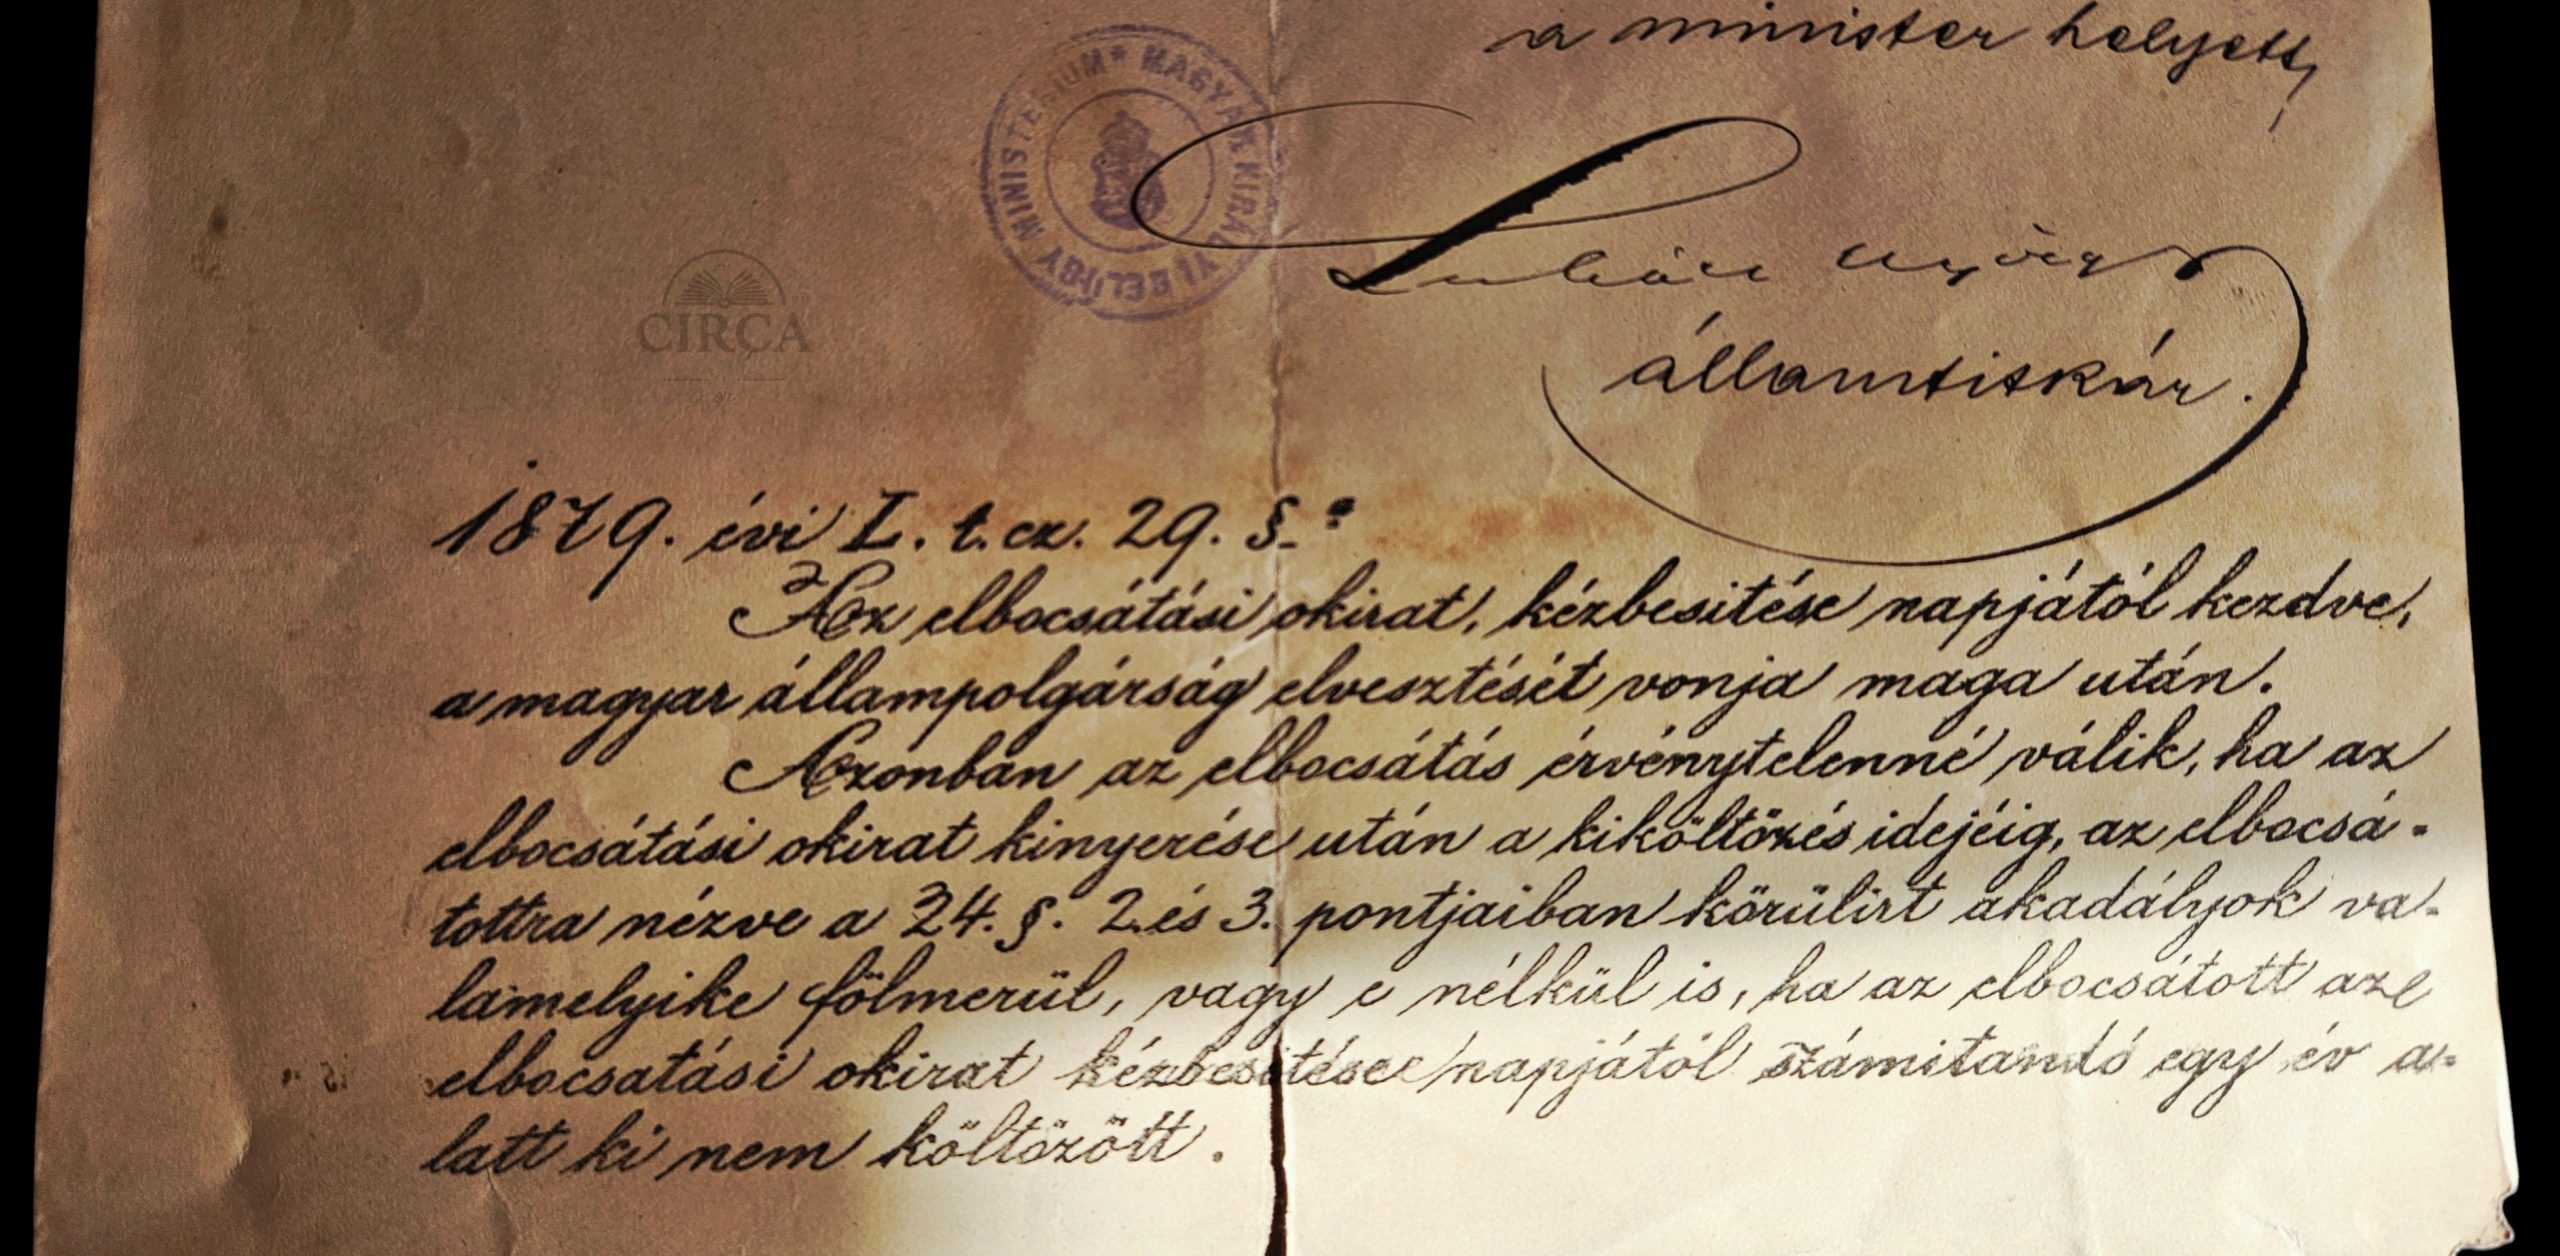 a minister helyett,
* MAGYAR KIRÁLYI BELÜGY MINISTERIUM
CIRCA
Lukács György
államtitkár.
1879. évi L. t. cz. 29. §.
Az elbocsátási okirat, kézbesitése napjától kezdve,
a magyar állampolgárság elvesztését vonja maga után.
Azonban az elbocsátás érvénytelenné válik, ha az
elbocsátási okirat kinyerése után a kiköltözés idejéig, az elbocsá-
tottra nézve a 24. §. 2. és 3. pontjaiban körülirt akadályok va-
lamelyike fölmerül, vagy e nélkül is, ha az elbocsátott az
elbocsatási okirat kézbesitése napjától számitandó egy év a-
latt ki nem költözött.